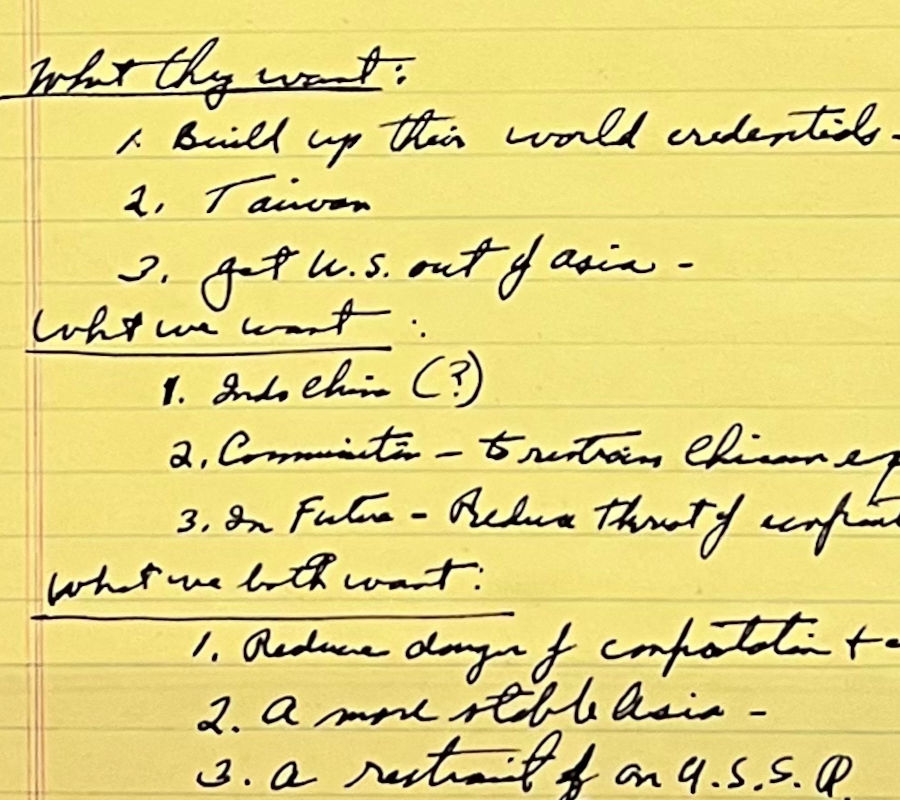 What they want:
1. Build up their world credentials -
2. Taiwan
3. get U.S. out of asia -
What we want :
1. Indo China (?)
2. - to restrain Chinese
3. In Future - Reduce threat of
What we both want:
1. Reduce danger of confrontation +
2. a more stable Asia -
3. a restraint of on U.S.S.R.